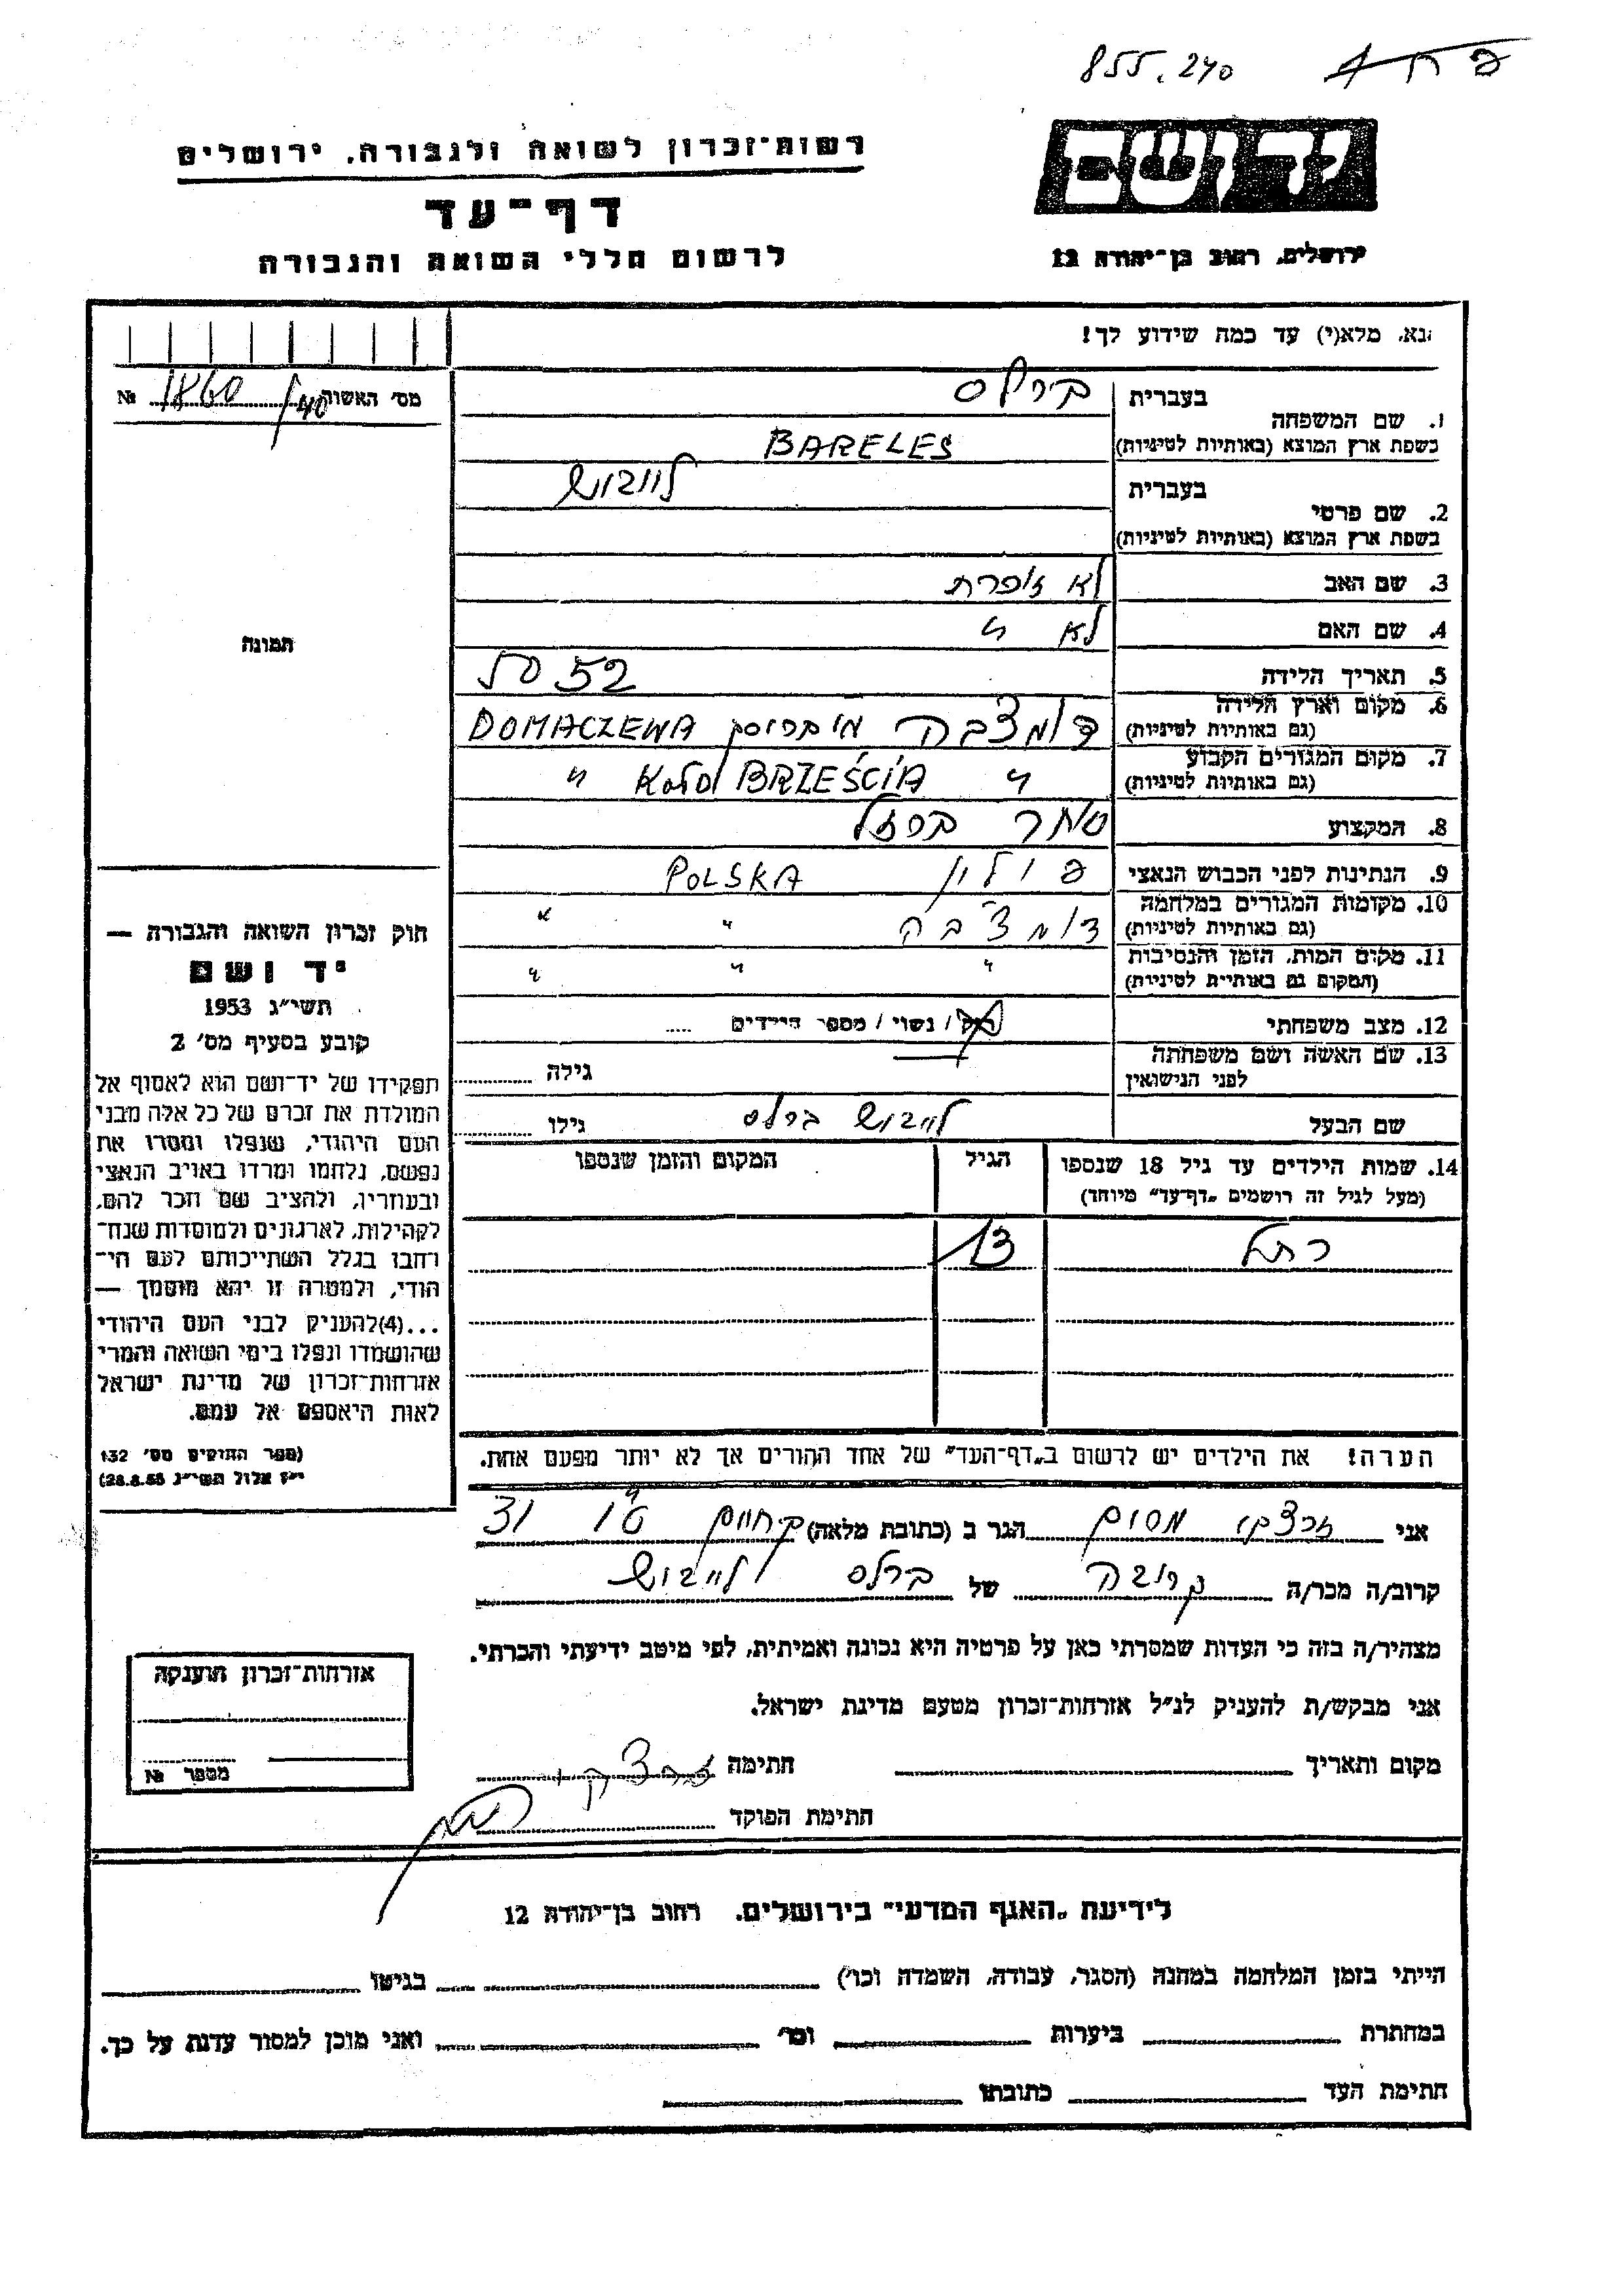 855.240
יד ושם
ירושלים, רחוב בן־יהודה 12
רשות־זכרון לשואה ולגבורה, ירושלים
דף־עד
לרשום חללי השואה והגבורה
נא, מלא(י) עד כמה שידוע לך!
מס' האשור 1860/40 №
תמונה
1. שם המשפחה
בעברית
ברלס
בשפת ארץ המוצא (באותיות לטיניות)
BARELES
2. שם פרטי
בעברית
לייבוש
בשפת ארץ המוצא (באותיות לטיניות)
3. שם האב
לא זוכרת
4. שם האם
לא "
5. תאריך הלידה
52
6. מקום וארץ הלידה
(גם באותיות לטיניות)
דומצ'בה DOMACZEWA
7. מקום המגורים הקבוע
(גם באותיות לטיניות)
" KOŁO BRZEŚCIA "
8. המקצוע
סוחר ברזל
9. הנתינות לפני הכבוש הנאצי
פולין POLSKA
10. מקומות המגורים במלחמה
(גם באותיות לטיניות)
דומצ'בה " "
11. מקום המות, הזמן והנסיבות
(המקום גם באותיות לטיניות)
" " "
12. מצב משפחתי
רוק / נשוי / מספר הילדים .....
13. שם האשה ושם משפחתה
לפני הנישואין
גילה
שם הבעל
לייבוש ברלס
גילו
14. שמות הילדים עד גיל 18 שנספו
(מעל לגיל זה רושמים „דף־עד" מיוחד)
הגיל
המקום והזמן שנספו
רחל 13
הערה! את הילדים יש לרשום ב„דף־העד" של אחד ההורים אך לא יותר מפעם אחת.
חוק זכרון השואה והגבורה —
יד ושם
תשי"ג 1953
קובע בסעיף מס' 2
תפקידו של יד־ושם הוא לאסוף אל
המולדת את זכרם של כל אלה מבני
העם היהודי, שנפלו ומסרו את
נפשם, נלחמו ומרדו באויב הנאצי
ובעוזריו, ולהציב שם וזכר להם,
לקהילות, לארגונים ולמוסדות שנח־
רחבו בגלל השתייכותם לעם הי־
הודי, ולמטרה זו יהא מוסמך —
...(4)להעניק לבני העם היהודי
שהושמדו ונפלו בימי השואה והמרי
אזרחות־זכרון של מדינת ישראל
לאות היאספם אל עמם.
(ספר החוקים מס' 132
י"ז אלול תשי"ג 28.8.53)
אני הגר ב (כתובת מלאה) 31
קרוב/ה מכר/ה קרובה של ברלס לייבוש
מצהיר/ה בזה כי העדות שמסרתי כאן על פרטיה היא נכונה ואמיתית, לפי מיטב ידיעתי והכרתי.
אני מבקש/ת להעניק לנ"ל אזרחות־זכרון מטעם מדינת ישראל.
מקום ותאריך חתימה
חתימת הפוקד
אזרחות־זכרון הוענקה
מספר №
לידיעת „האגף המדעי" בירושלים, רחוב בן־יהודה 12
הייתי בזמן המלחמה במחנה (הסגר, עבודה, השמדה וכו') בגיטו
במחתרת ביערות וכו' ואני מוכן למסור עדות על כך.
חתימת העד כתובתו